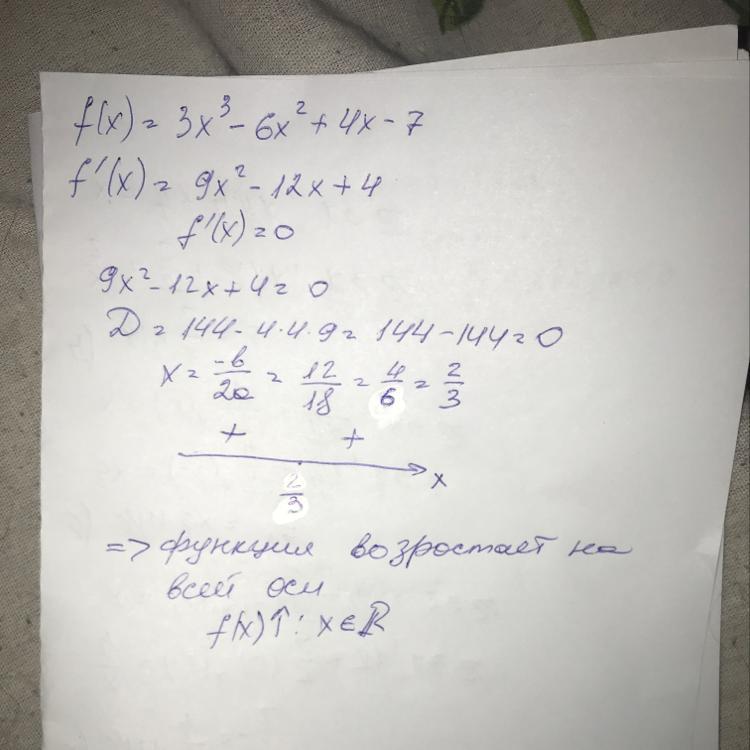 f(x) = 3x³ - 6x² + 4x - 7
f'(x) = 9x² - 12x + 4
f'(x) = 0
9x² - 12x + 4 = 0
D = 144 - 4·4·9 = 144 - 144 = 0
x = -b/2a = 12/18 = 4/6 = 2/3
+ +
x
2/3
=> функция возростает на
всей оси
f(x)↑: x∈ℝ